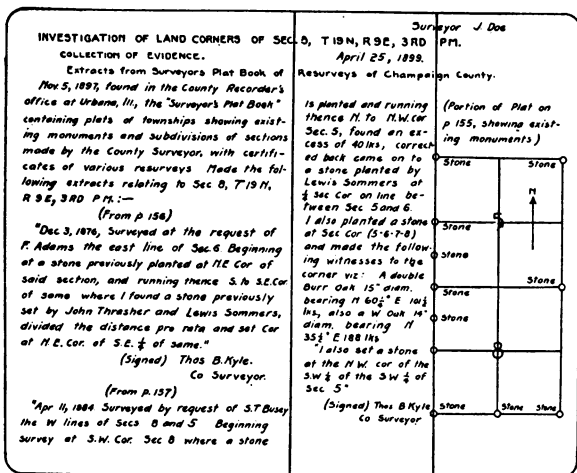 Surveyor J. Doe
INVESTIGATION OF LAND CORNERS OF SEC. 8, T 19 N, R 9 E, 3RD P.M.
COLLECTION OF EVIDENCE.
April 25, 1899.
Extracts from Surveyors Plat Book of Resurveys of Champaign County.
Nov. 5, 1897, found in the County Recorder's
office at Urbana, Ill., the "Surveyor's Plat Book"
containing plats of townships showing exist-
ing monuments and subdivisions of sections
made by the County Surveyor, with certifi-
cates of various resurveys Made the fol-
lowing extracts relating to Sec 8, T 19 N,
R 9 E, 3RD P M.:—
(From p 156)
"Dec 3, 1876, Surveyed at the request of
F. Adams the east line of Sec. 6 Beginning
at a stone previously planted at N.E Cor of
said section, and running thence S. to S.E. Cor
of same where I found a stone previously
set by John Thrasher and Lewis Sommers,
divided the distance pro rata and set Cor
at N.E. Cor. of S.E. ¼ of same."
(Signed) Thos B. Kyle.
Co Surveyor.
(From p. 157)
"Apr 11, 1884 Surveyed by request of S.T Busey
the W lines of Secs 8 and 5 Beginning
survey at S.W. Cor. Sec 8 where a stone
is planted and running
thence N. to N.W. cor
Sec. 5, found an ex-
cess of 40 lks, correct-
ed back came on to
a stone planted by
Lewis Sommers at
¼ Sec Cor on line be-
tween Sec 5 and 6.
I also planted a stone
at Sec Cor (5-6-7-8)
and made the follow-
ing witnesses to the
corner viz: A double
Burr Oak 15" diam.
bearing N 60½° E 101½
lks, also a W Oak 14"
diam. bearing N
35½° E 188 lks
"I also set a stone
at the N W. cor of the
S.W ¼ of the S W ¼ of
Sec. 5"
(Signed) Thos B. Kyle
Co Surveyor
(Portion of Plat on
p 155, showing exist-
ing monuments)
Stone Stone
N
Stone
5
Stone
Stone Stone
Stone
Stone
8
Stone Stone Stone